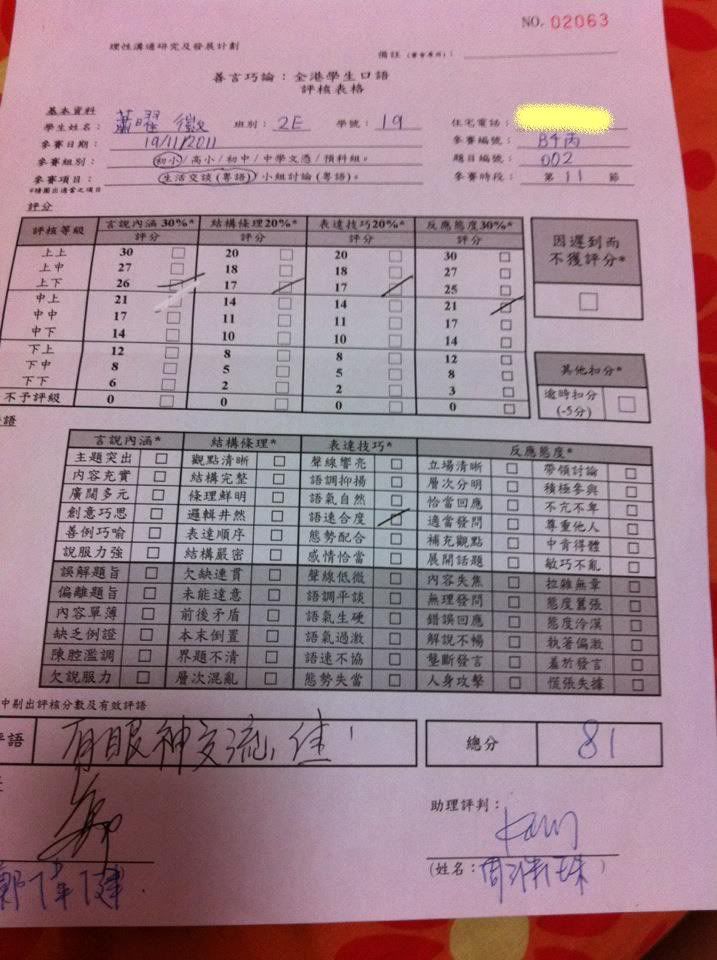 NO. 02063
理性溝通研究及發展計劃 備註（賽會專用）：
善言巧論：全港學生口語
評核表格
基本資料
學生姓名： 班別：2E 學號：19 住宅電話：
參賽日期：19/11/2011 參賽編號：B4丙
參賽組別：初小/高小/初中/中學文憑/預科組。 題目編號：002
參賽項目：生活交談(粵語)/小組討論(粵語)。 參賽時段：第 11 節
*請圈出適當之項目
評分
評核等級 言說內涵 30%* 結構條理20%* 表達技巧20%* 反應態度30%*
評分 評分 評分 評分
上上 30 20 20 30
上中 27 18 18 27
上下 26 17 17 25
中上 21 14 14 21
中中 17 11 11 17
中下 14 10 10 14
下上 12 8 8 12
下中 8 5 5 8
下下 6 2 2 3
不予評級 0 0 0 0
因遲到而
不獲評分*
其他扣分*
逾時扣分
(-5分)
語
言說內涵* 結構條理* 表達技巧* 反應態度*
主題突出 觀點清晰 聲線響亮 立場清晰 帶領討論
內容充實 結構完整 語調抑揚 層次分明 積極參與
廣闊多元 條理鮮明 語氣自然 恰當回應 不亢不卑
創意巧思 邏輯井然 語速合度 適當發問 尊重他人
善例巧喻 表達順序 態勢配合 補充觀點 中肯得體
說服力強 結構嚴密 感情恰當 展開話題 敏巧不亂
誤解題旨 欠缺連貫 聲線低微 內容失焦 拉雜無章
偏離題旨 未能達意 語調平談 無理發問 態度囂張
內容單薄 前後矛盾 語氣生硬 錯誤回應 態度冷漠
缺乏例證 本末倒置 語氣過激 解說不暢 執著偏激
陳腔濫調 界題不清 語速不協 壟斷發言 羞於發言
欠說服力 層次混亂 態勢失當 人身攻擊 慌張失據
中剔出評核分數及有效評語
評語 有眼神交流,佳! 總分 81
助理評判：
(姓名： )